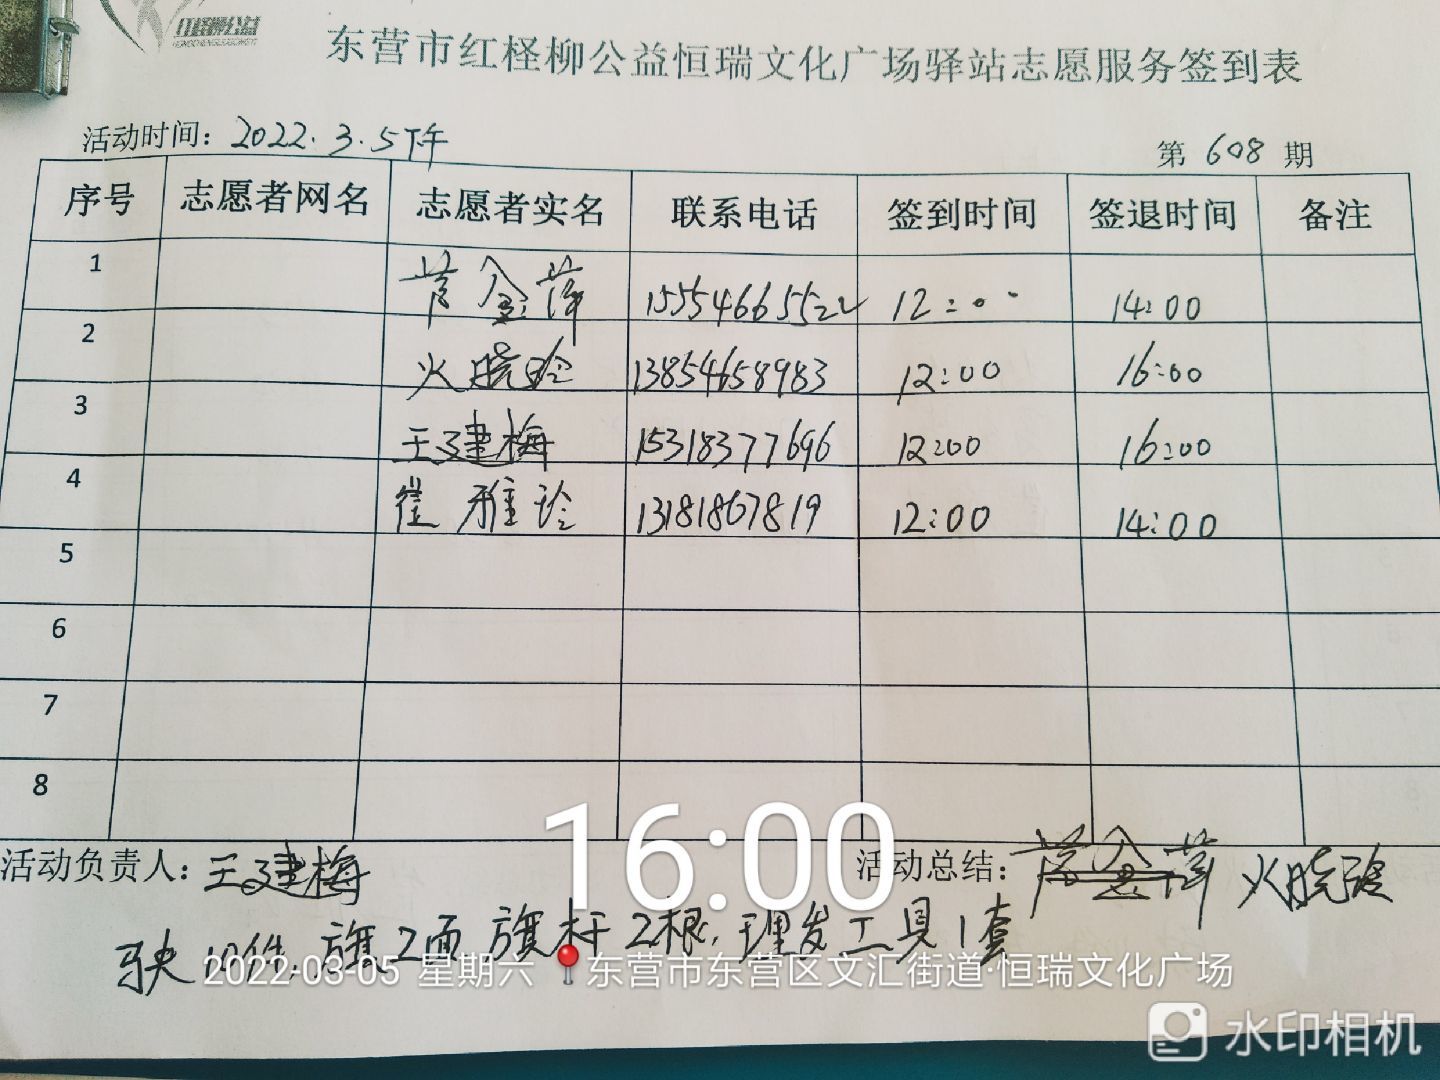 红柽柳公益
东营市红柽柳公益恒瑞文化广场驿站志愿服务签到表
活动时间：2022.3.5下午
第 608 期
序号 志愿者网名 志愿者实名 联系电话 签到时间 签退时间 备注
1 金萍 15554665522 12:00 14:00
2 火晓玲 13854658983 12:00 16:00
3 王建梅 15318377696 12:00 16:00
4 崔雅诊 13181867819 12:00 14:00
5
6
7
8
16:00
活动负责人：王建梅 活动总结：金萍 火晓玲
10件，旗2面 旗杆2根，理发工具1套
2022-03-05 星期六 东营市东营区文汇街道·恒瑞文化广场
水印相机